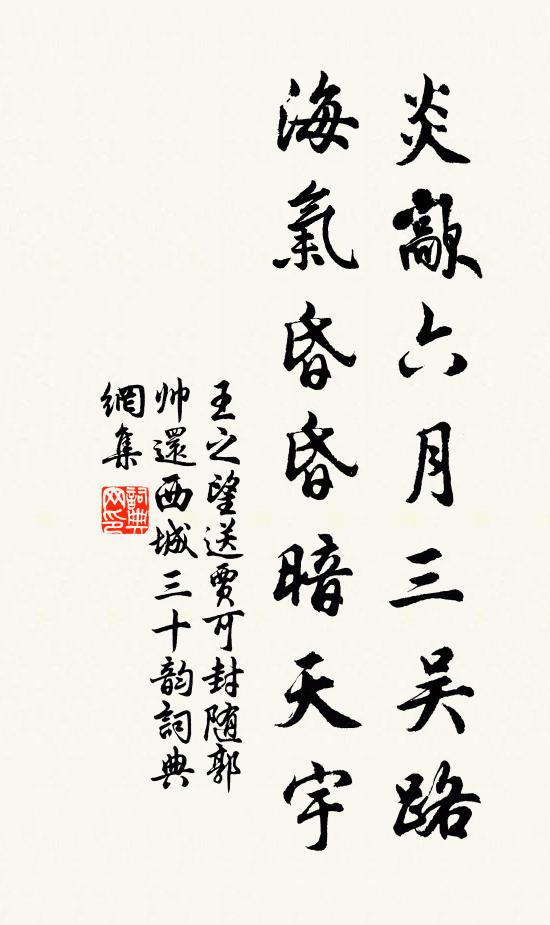 炎歊六月三吴路
海氣昏昏暗天宇
王之望送賈可封随郭
帅還西城三十韵詞典
網集
詞典
网印